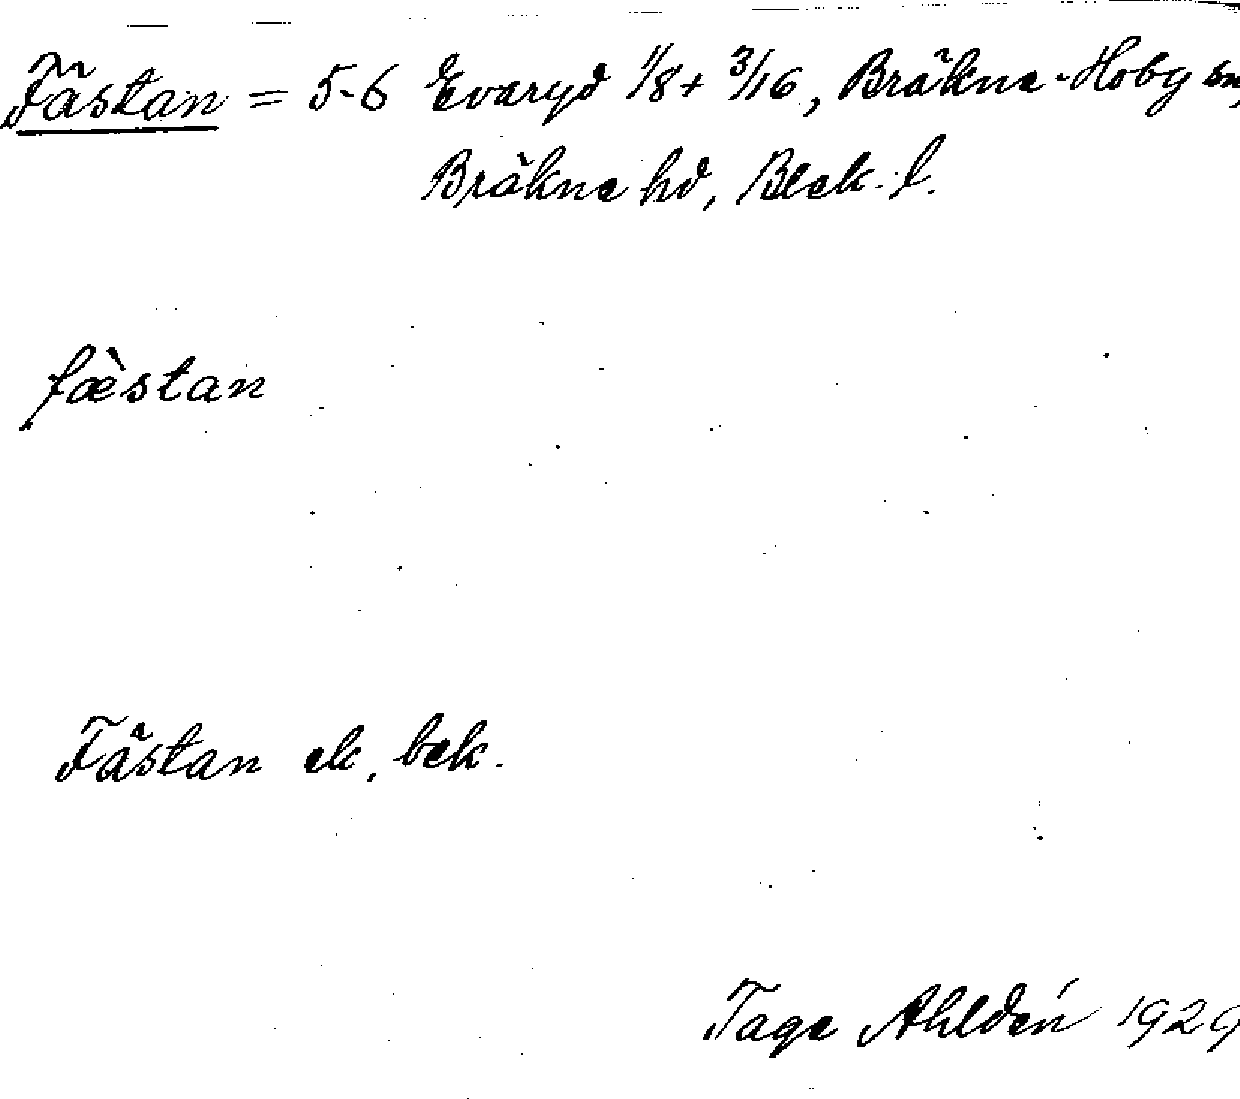 Fästan = 5-6 Evaryd 1/8 + 3/16, Bräkne-Hoby sn,
Bräkne hd, Blek. l.
fæ̀stan
Fästan ek, bek.
Tage Ahldén 1929